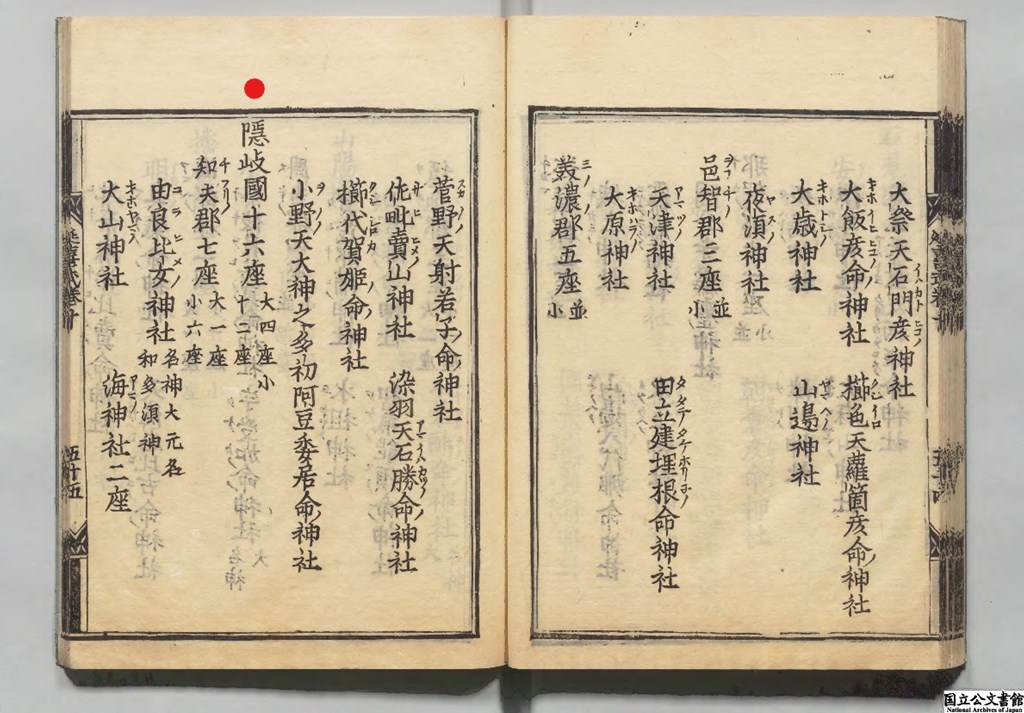 大祭天石門彦神社
大飯彦命神社 櫛色天蘿箇彦命神社
大歳神社 山邉神社
夜湏神社
邑智郡三座並小
天津神社 田立建埋根命神社
大原神社
美濃郡五座並小
菅野天射若子命神社
佐毗賣山神社 染羽天石勝命神社
櫛代賀姫命神社
小野天大神之多初阿豆委居命神社
隱岐國十六座大四座小十二座
知夫郡七座大一座小六座
由良比女神社名神大元名和多湏神
大山神社 海神社二座
延喜式巻十
五十五
国立公文書館
National Archives of Japan